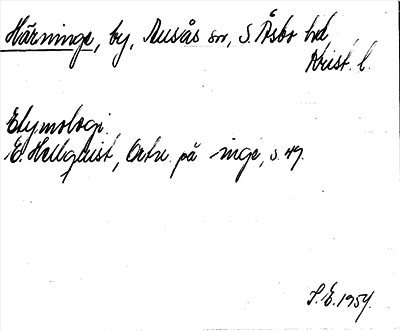 Härninge, by, Ausås sn, S. Åsbo hd,
Krist. l.
Etymologi.
E. Hellquist, Ortn. på inge, s. 49.
S.E. 1954.